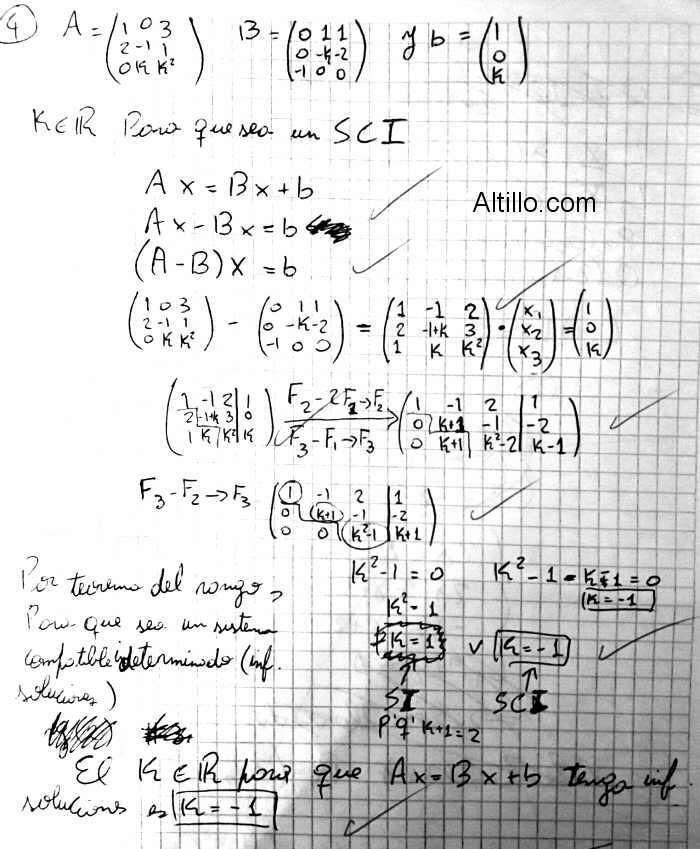 4) A = (1 0 3 / 2 -1 1 / 0 K K²) B = (0 1 1 / 0 -K -2 / -1 0 0) y b = (1 / 0 / K)
K∈ℝ Para que sea un SCI
Ax = Bx + b
Ax - Bx = b
Altillo.com
(A - B) x = b
(1 0 3 / 2 -1 1 / 0 K K²) - (0 1 1 / 0 -K -2 / -1 0 0) = (1 -1 2 / 2 -1+K 3 / 1 K K²) · (x₁ / x₂ / x₃) = (1 / 0 / K)
(1 -1 2 | 1 / 2 -1+K 3 | 0 / 1 K K² | K) F₂ - 2F₁ → F₂ F₃ - F₁ → F₃ (1 -1 2 | 1 / 0 K+1 -1 | -2 / 0 K+1 K²-2 | K-1)
F₃ - F₂ → F₃ (1 -1 2 | 1 / 0 K+1 -1 | -2 / 0 0 K²-1 | K+1)
Por teorema del rango,
Para que sea un sistema
compatible indeterminado (inf.
soluciones)
K² - 1 = 0 K² - 1 = K+1 = 0
K² - 1 K = -1
K = 1 v K = -1
SI SCI
p'q' K+1 = 2
El K∈ℝ para que Ax = Bx + b tenga inf.
soluciones es K = -1